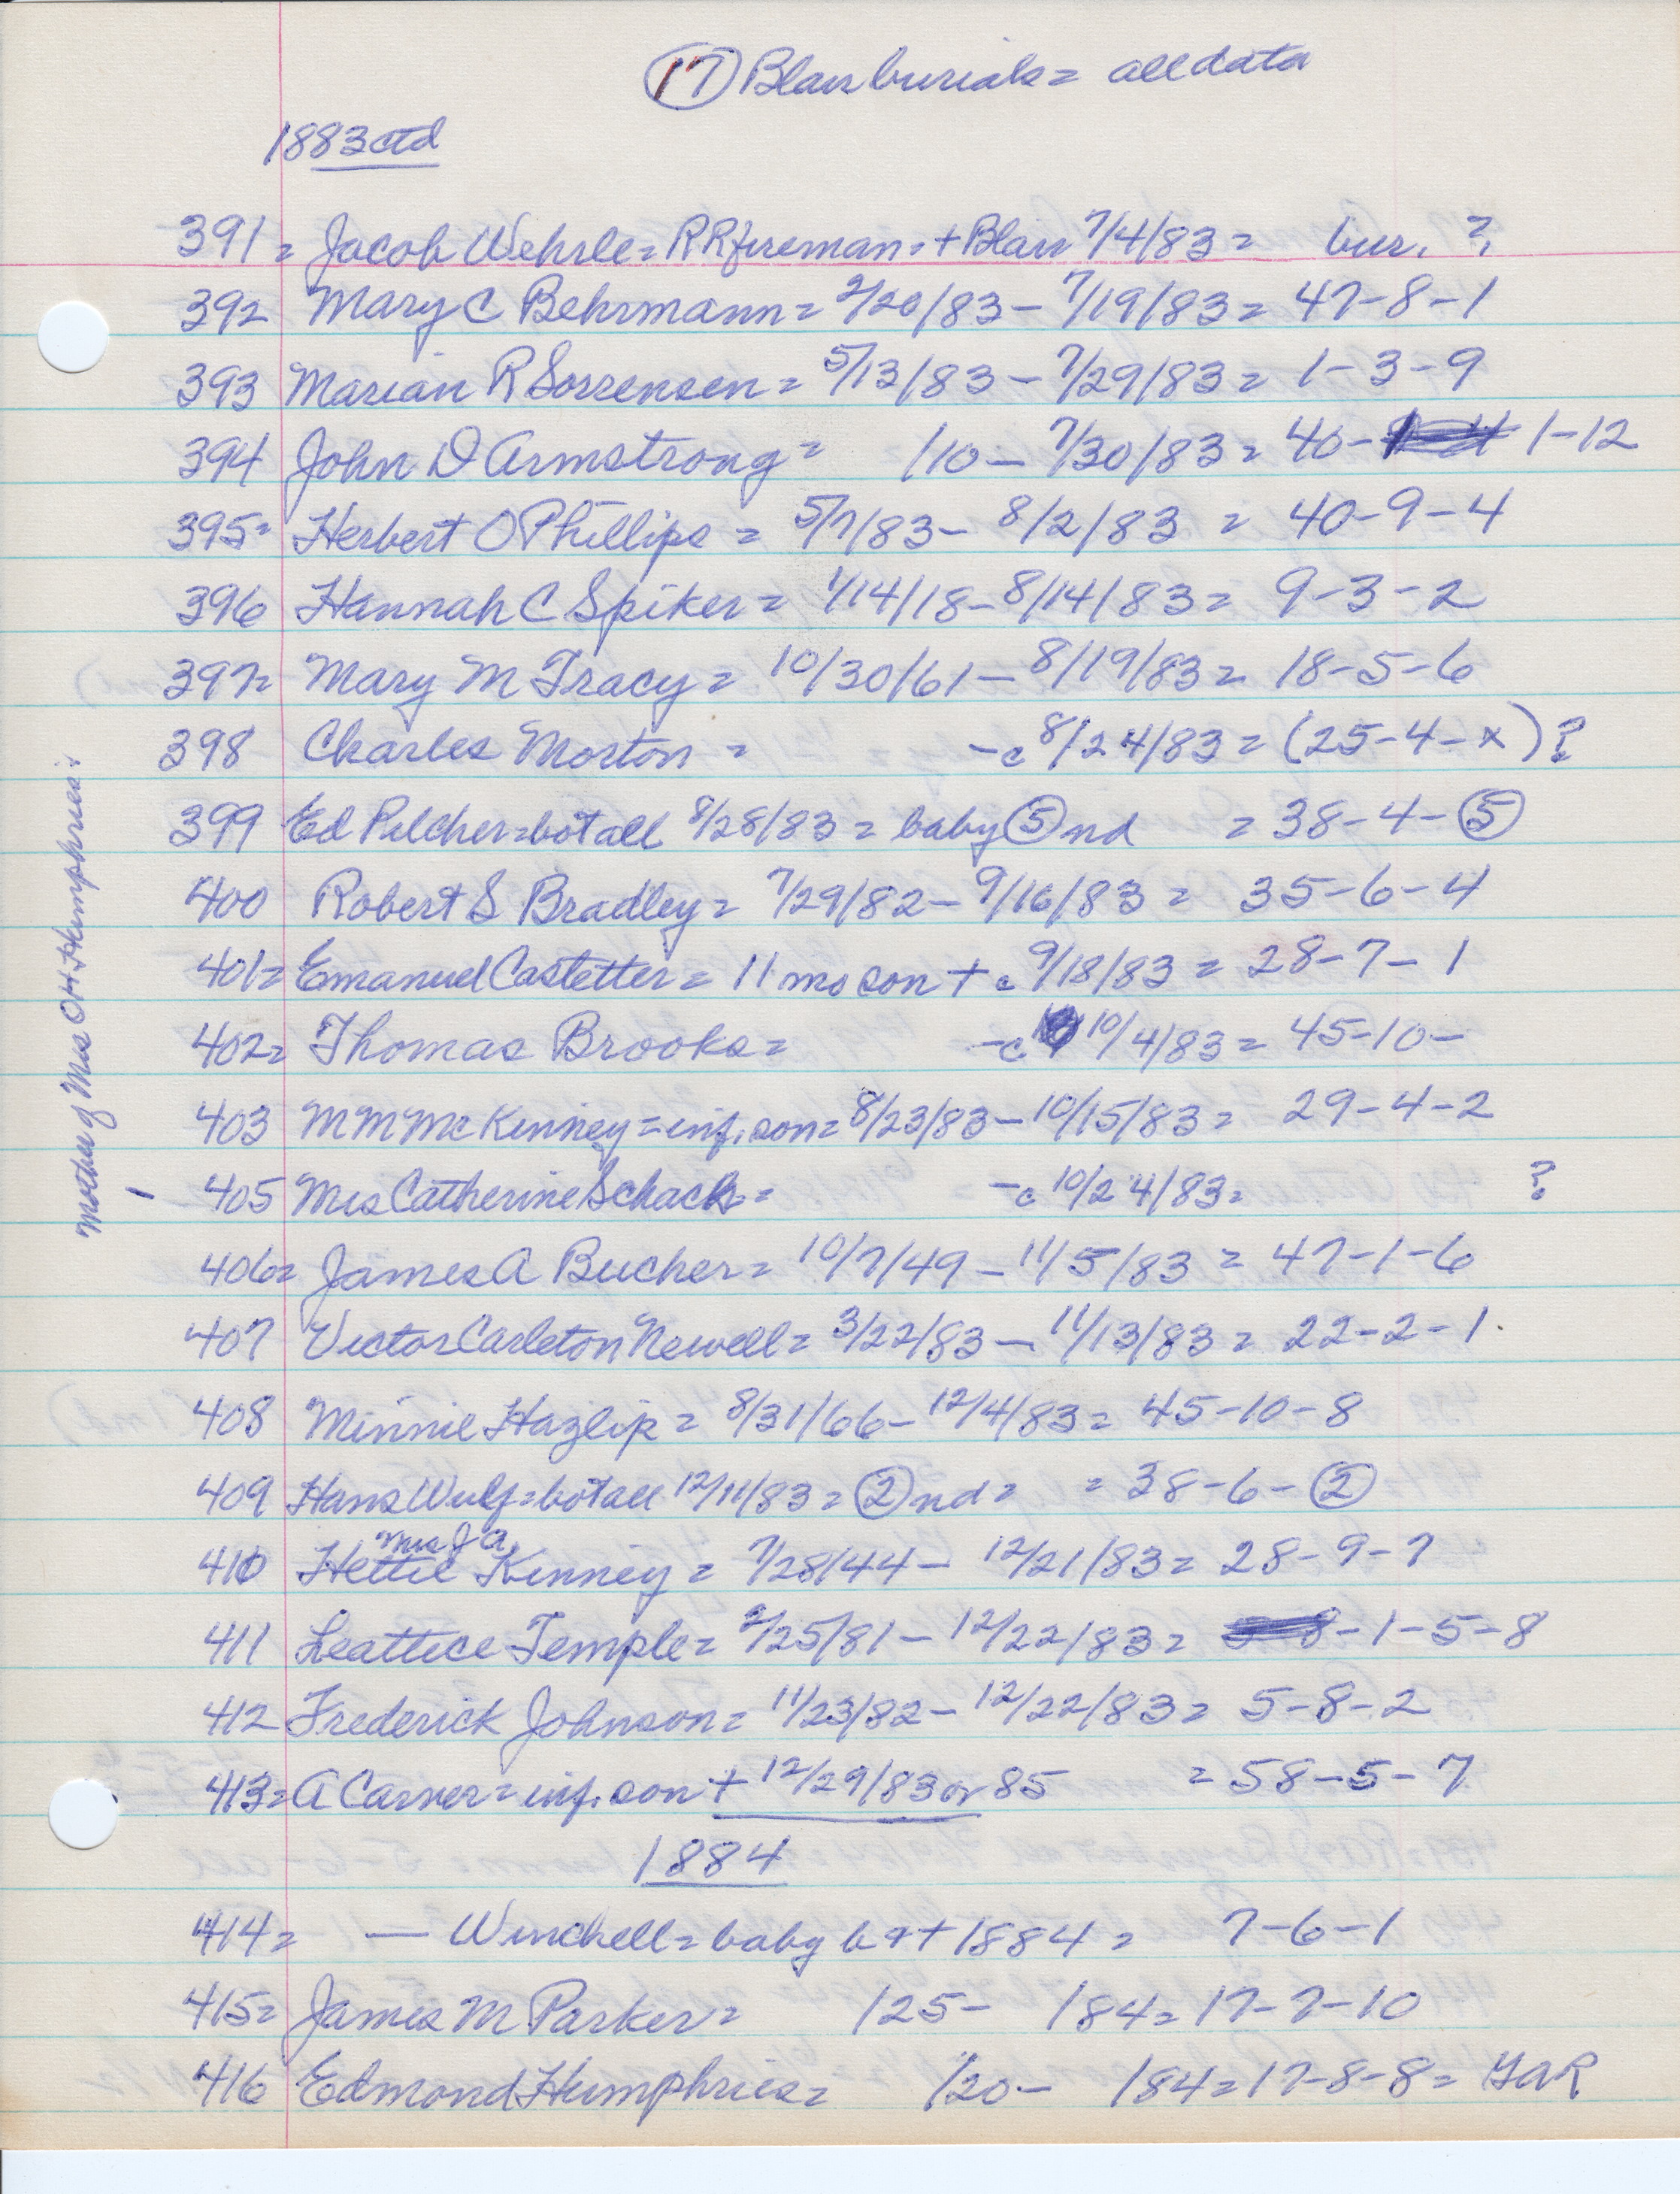 (17) Blair burials = all data
1883 ctd
391 = Jacob Wehrle = RR fireman = + Blair 7/4/83 = bur. ?
392 Mary C Behrmann = 2/20/83 - 7/19/83 = 47-8-1
393 Marian R Sorrensen = 5/13/83 - 7/29/83 = 1-3-9
394 John D Armstrong = /10 - 7/30/83 = 40- 1-12
395 = Herbert O Phillips = 5/7/83 - 8/2/83 = 40-9-4
396 Hannah C Spiker = 1/14/18 - 8/14/83 = 9-3-2
397 = Mary M Tracy = 10/30/61 - 8/19/83 = 18-5-6
398 Charles Morton = - c 8/24/83 = (25-4-x) ?
399 Ed Pilcher = bot all 8/28/83 = baby (5) nd = 38-4-(5)
400 Robert S Bradley = 7/29/82 - 9/16/83 = 35-6-4
401 = Emanuel Castetter = 11 mo son + c 9/18/83 = 28-7-1
402 = Thomas Brooks = - c 10/4/83 = 45-10-
403 M M McKinney = inf. son = 8/23/83 - 10/15/83 = 29-4-2
405 Mrs Catherine Schack = - c 10/24/83 = ?
mother of Mrs Ott Humphries
406 = James A Bucher = 10/7/49 - 11/5/83 = 47-1-6
407 Victor Carleton Newell = 3/22/83 - 11/13/83 = 22-2-1.
408 Minnie Hazlip = 8/31/66 - 12/4/83 = 45-10-8
409 Hans Wulf = bot all 12/11/83 = (2) nd = = 38-6-(2)
Mrs J A.
410 Hettie Kinney = 7/28/44 - 12/21/83 = 28-9-7
411 Leattice Temple = 2/25/81 - 12/22/83 = -1-5-8
412 Frederick Johnson = 11/23/82 - 12/22/83 = 5-8-2
413 = A Carver = inf. son + 12/29/83 or 85 = 58-5-7
1884
414 = — Winchell = baby b + 1884 = 7-6-1
415 = James M Parker = /25 - /84 = 17-7-10
416 Edmond Humphries = /20 - /84 = 17-8-8 = GAR